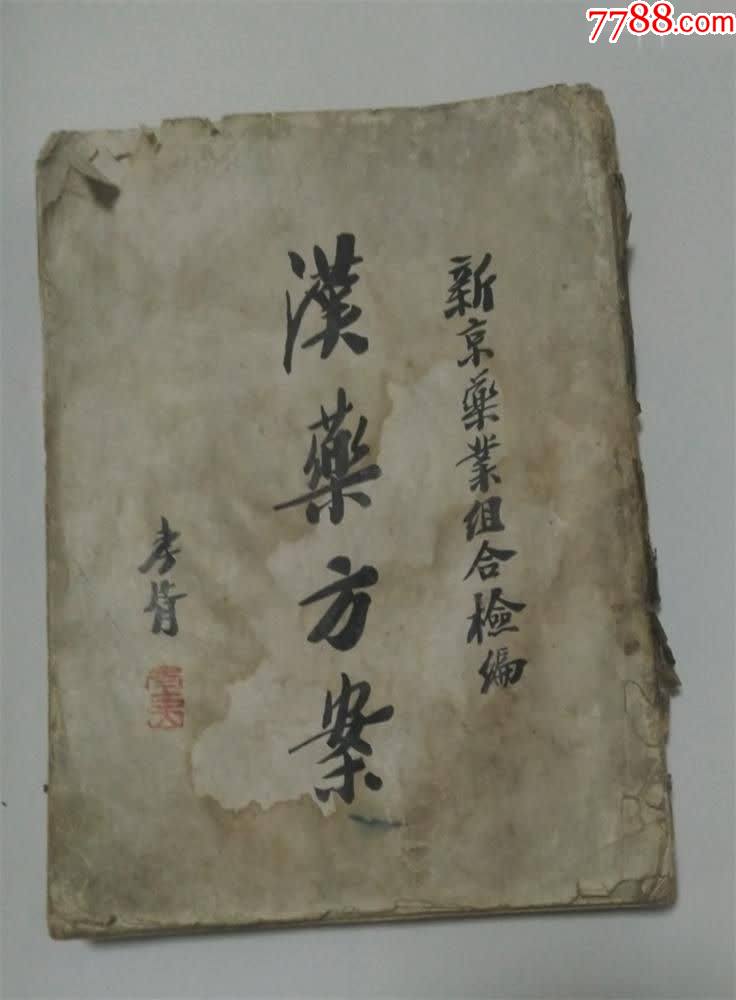 7788.com
新京藥業组合檢編
漢藥方案